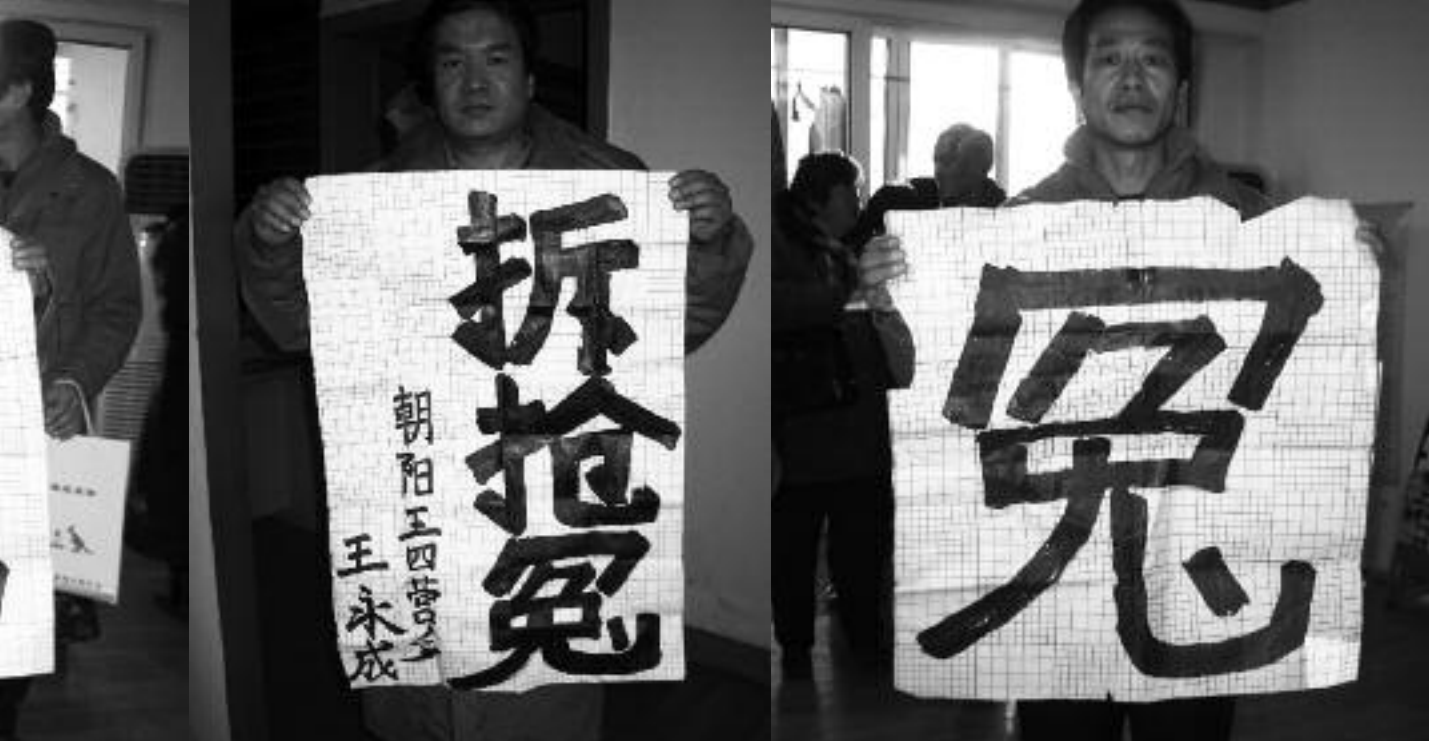 拆抢冤
朝阳王四营
王永成
冤